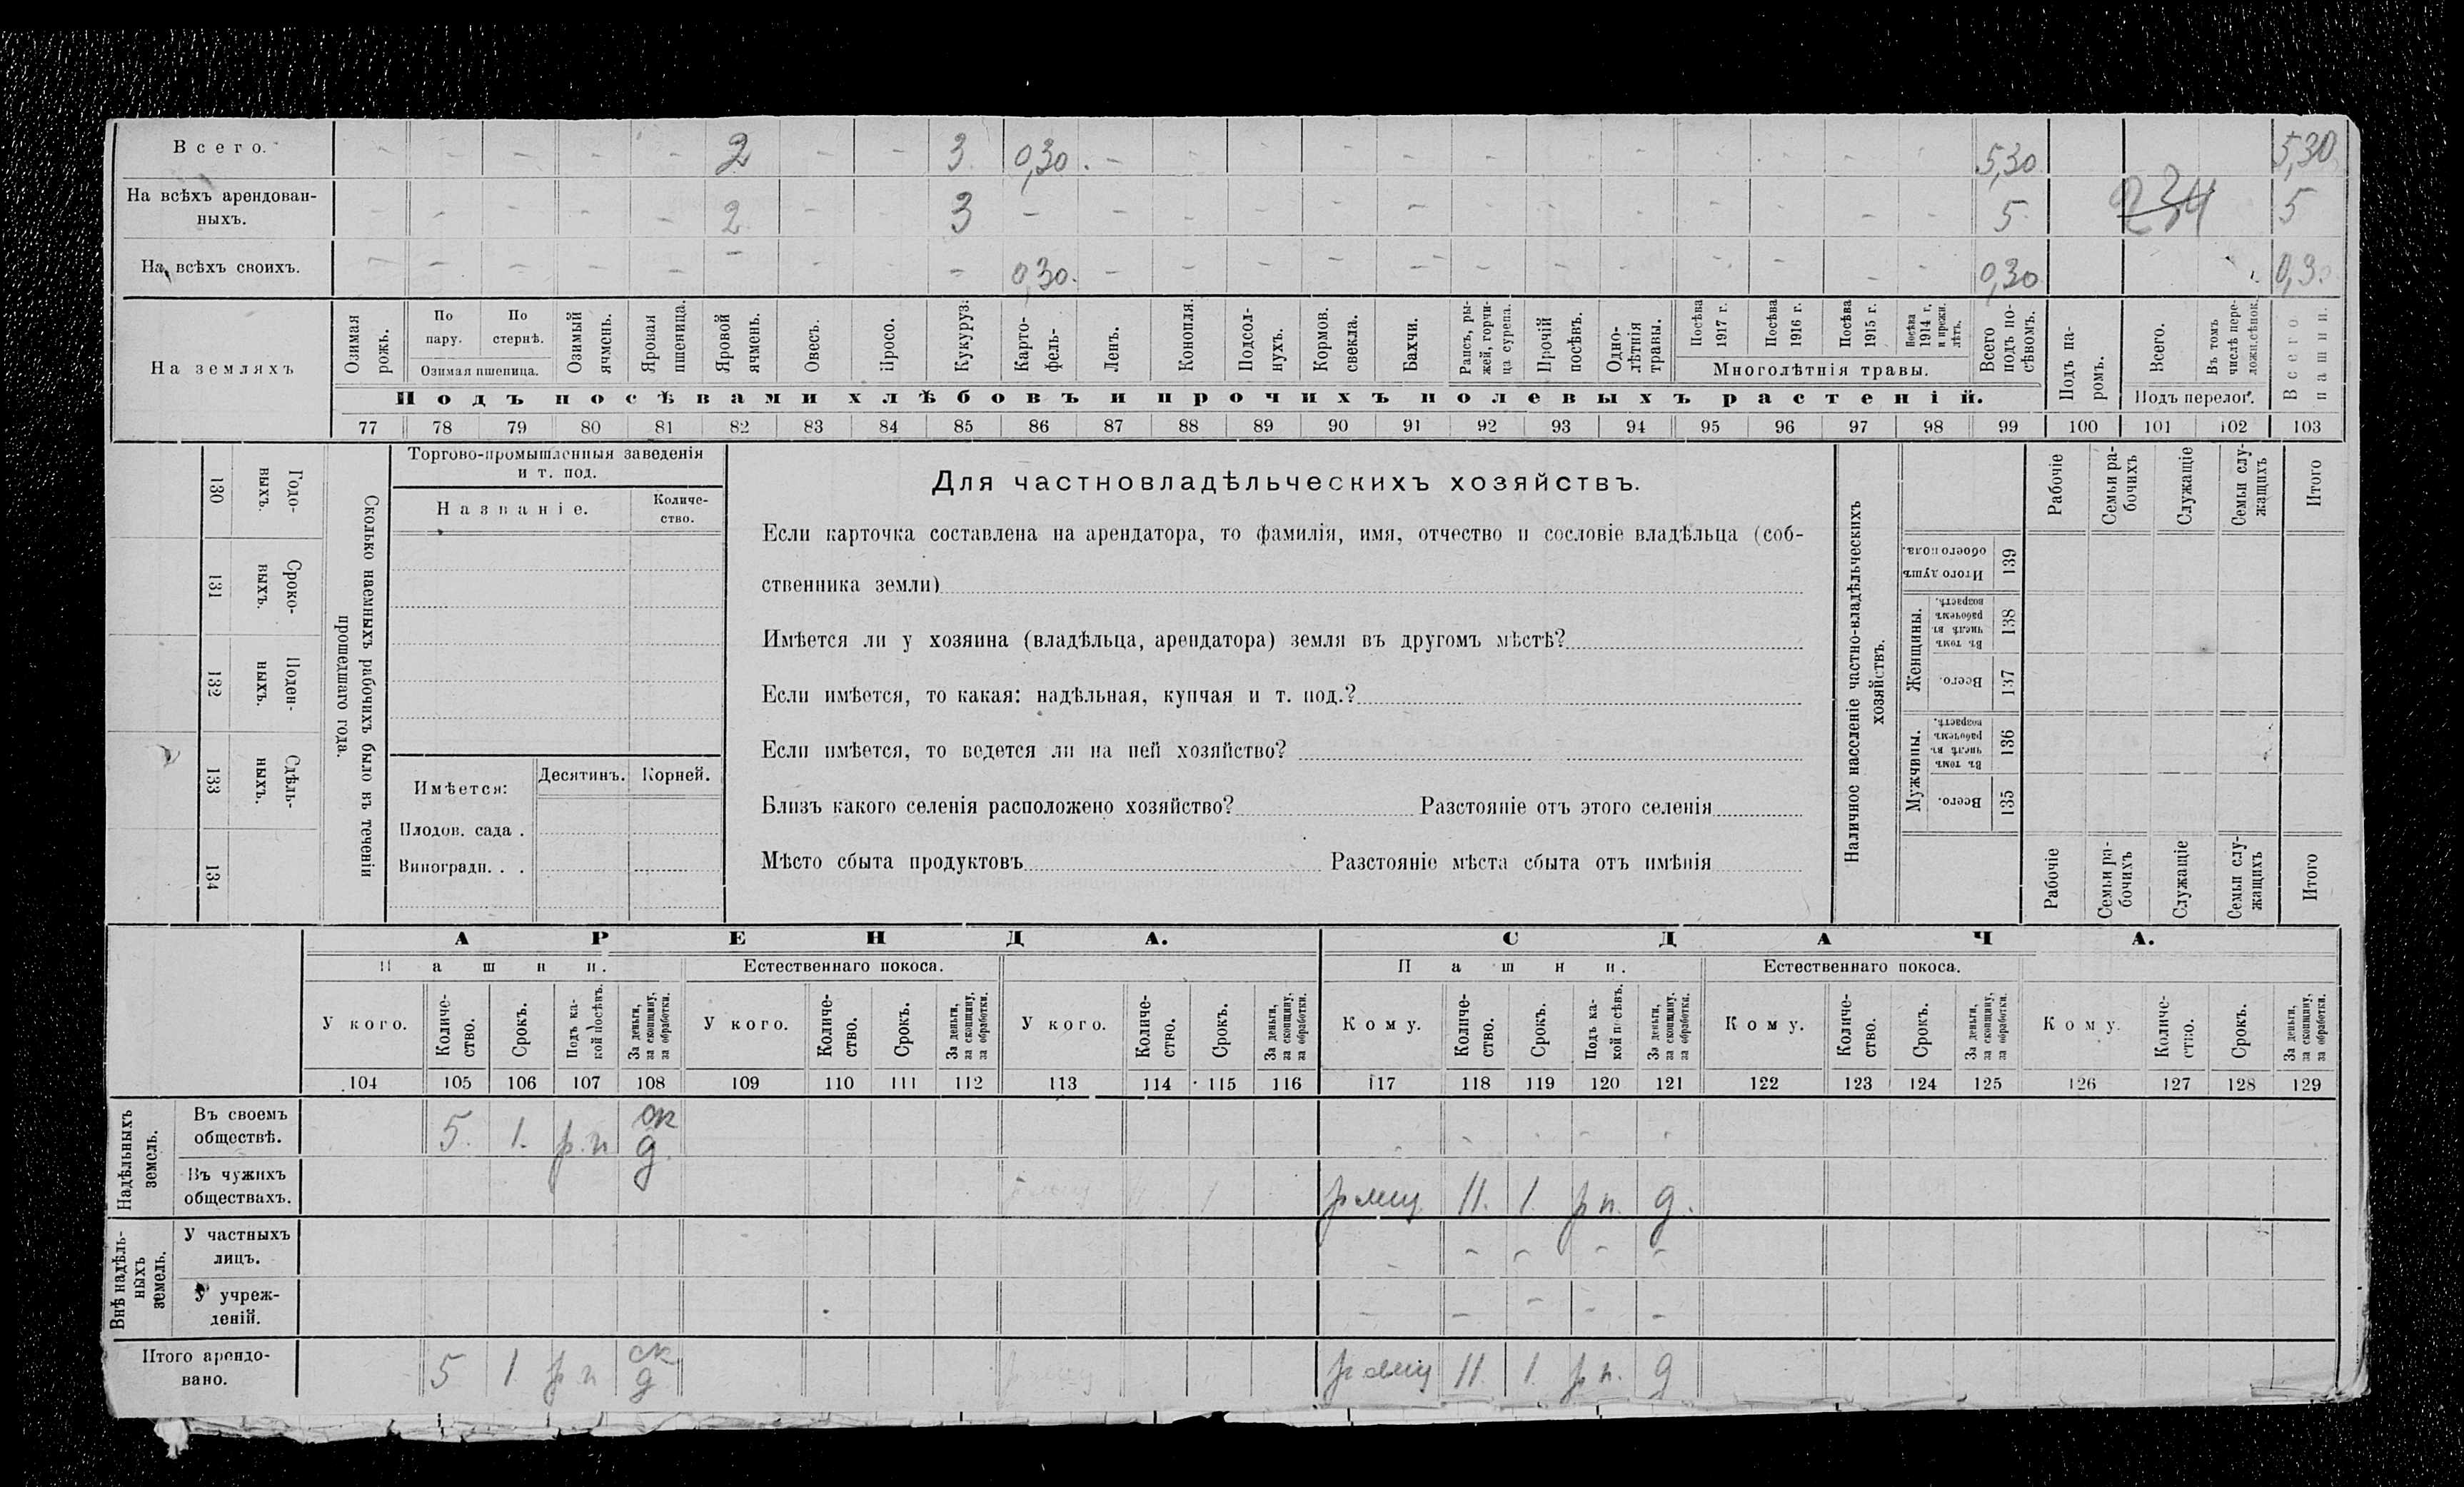 Всего. - - - - - 2 - - 3 0,30. - - - - - - - - - - - - 5,30 5,30
На всѣхъ арендован-
ныхъ. - - - - - 2 - - 3 - - - - - - - - - - - - - 5 234 5
На всѣхъ своихъ. - - - - - - - - - 0,30. - - - - - - - - - - - - 0,30
На земляхъ
Озимая рожь.
По пару.
По стернѣ.
Озимая пшеница.
Озимый ячмень.
Яровая пшеница.
Яровой ячмень.
Овесъ.
Просо.
Кукуруз.
Карто-
фель-
Ленъ.
Конопля.
Подсол-
нухъ.
Кормов.
свекла.
Бахчи.
Рапсъ, ры-
жей, горчи-
ца сурепа.
Прочій
посѣвъ.
Одно-
лѣтнія
травы.
Посѣва
1917 г.
Посѣва
1916 г.
Посѣва
1915 г.
Посѣва
1914 г.
и прежн.
лѣтъ.
Многолѣтнія травы.
Всего
подъ по-
сѣвомъ.
Подъ па-
ромъ.
Всего.
Въ томъ
числѣ пере-
ложн.сѣнок.
Подъ перелог.
Всего
пашни.
Подъ посѣвами хлѣбовъ и прочихъ полевыхъ растеній.
77 78 79 80 81 82 83 84 85 86 87 88 89 90 91 92 93 94 95 96 97 98 99 100 101 102 103
Годо-
выхъ.
130
Сроко-
выхъ.
131
Поден-
ныхъ.
132
Сдѣль-
ныхъ.
133
134
Сколько наемныхъ рабочихъ было въ теченіи
прошедшаго года.
Торгово-промышленныя заведенія
и т. под.
Названіе.
Количе-
ство.
Имѣется:
Десятинъ.
Корней.
Плодов. сада .
Виноградн. . .
Для частновладѣльческихъ хозяйствъ.
Если карточка составлена на арендатора, то фамилія, имя, отчество и сословіе владѣльца (соб-
ственника земли)
Имѣется ли у хозяина (владѣльца, арендатора) земля въ другомъ мѣстѣ?
Если имѣется, то какая: надѣльная, купчая и т. под.?
Если имѣется, то ведется ли на ней хозяйство?
Близъ какого селенія расположено хозяйство? Разстояніе отъ этого селенія
Мѣсто сбыта продуктовъ Разстояніе мѣста сбыта отъ имѣнія
Наличное населеніе частно-владѣльческихъ
хозяйствъ.
Рабочіе
Семьи ра-
бочихъ
Служащіе
Семьи слу-
жащихъ
Итого
Итого душъ
обоего пола.
139
Женщины.
Въ томъ
числѣ въ
рабочемъ
возрастѣ.
138
Всего.
137
Мужчины.
Въ томъ
числѣ въ
рабочемъ
возрастѣ.
136
Всего.
135
Рабочіе
Семьи ра-
бочихъ
Служащіе
Семьи слу-
жащихъ
Итого
АРЕНДА. СДАЧА.
Пашни. Естественнаго покоса. Пашни. Естественнаго покоса.
У кого.
Количе-
ство.
Срокъ.
Подъ ка-
кой посѣвъ.
За деньги,
за скопщину,
за обработки.
У кого.
Количе-
ство.
Срокъ.
За деньги,
за скопщину,
за обработки.
У кого.
Количе-
ство.
Срокъ.
За деньги,
за скопщину,
за обработки.
Кому.
Количе-
ство.
Срокъ.
Подъ ка-
кой посѣвъ.
За деньги,
за скопщину,
за обработки.
Кому.
Количе-
ство.
Срокъ.
За деньги,
за скопщину,
за обработки.
Кому.
Количе-
ство.
Срокъ.
За деньги,
за скопщину,
за обработки.
104 105 106 107 108 109 110 111 112 113 114 115 116 117 118 119 120 121 122 123 124 125 126 127 128 129
Надѣльныхъ
земель.
Въ своемъ
обществѣ. 5. 1. р.п ск
д.
Въ чужихъ
обществахъ. 11. 1. р п. д.
Внѣ надѣль-
ныхъ
земель.
У частныхъ
лицъ. - - - - -
У учреж-
деній. - - - - -
Итого арендо-
вано. 5 1 р п ск
д 11. 1. р п. д